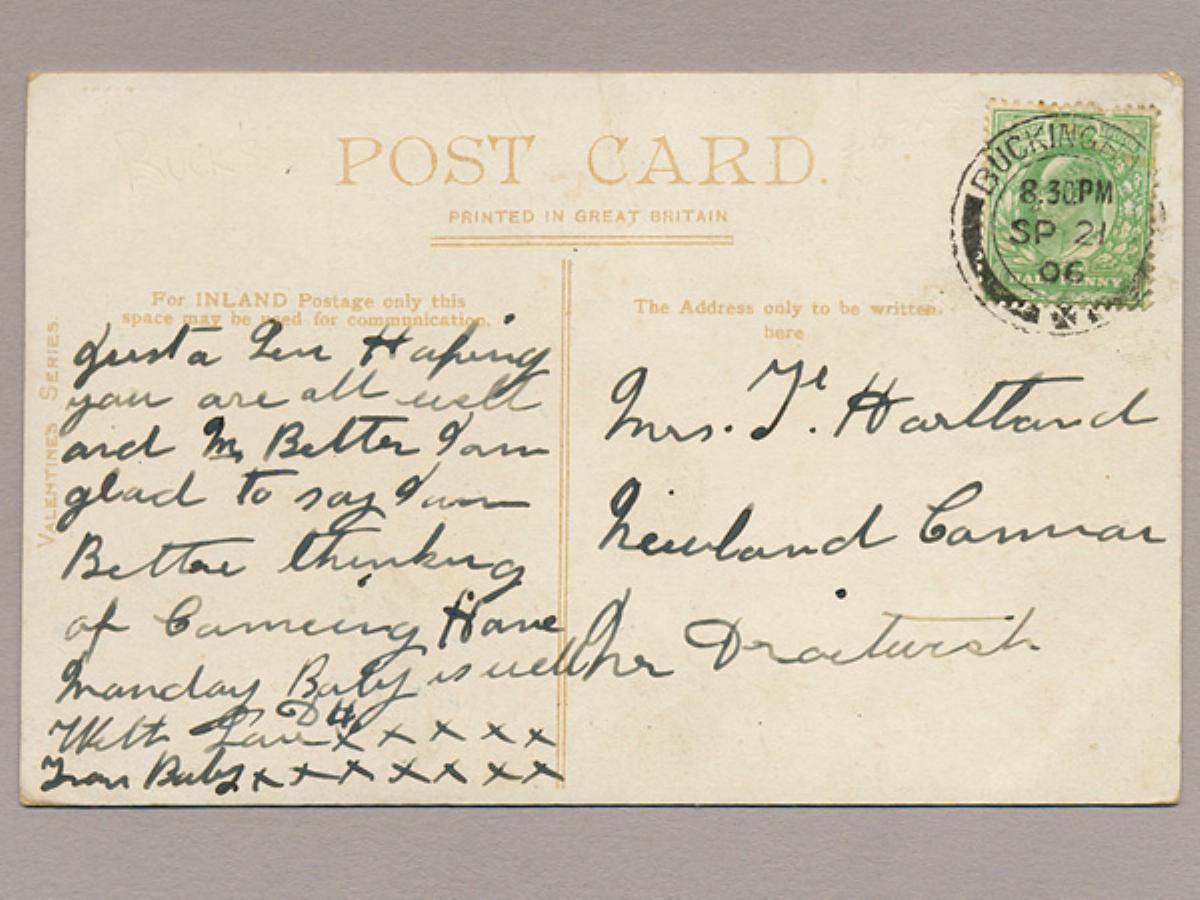 BUCKS
POST CARD.
PRINTED IN GREAT BRITAIN
BUCKINGHAM
8.30PM
SP 21
06
HALFPENNY
VALENTINES SERIES.
For INLAND Postage only this
space may be used for communication.
The Address only to be written
here
Just a Line Hoping
you are all well
and M Better I am
glad to say I am
Better thinking
of Comeing Home
Monday Baby is well
With Love DH x x x x x
From Baby x x x x x x x
Mrs. T. Hartland
Newland Common
Nr Droitwich